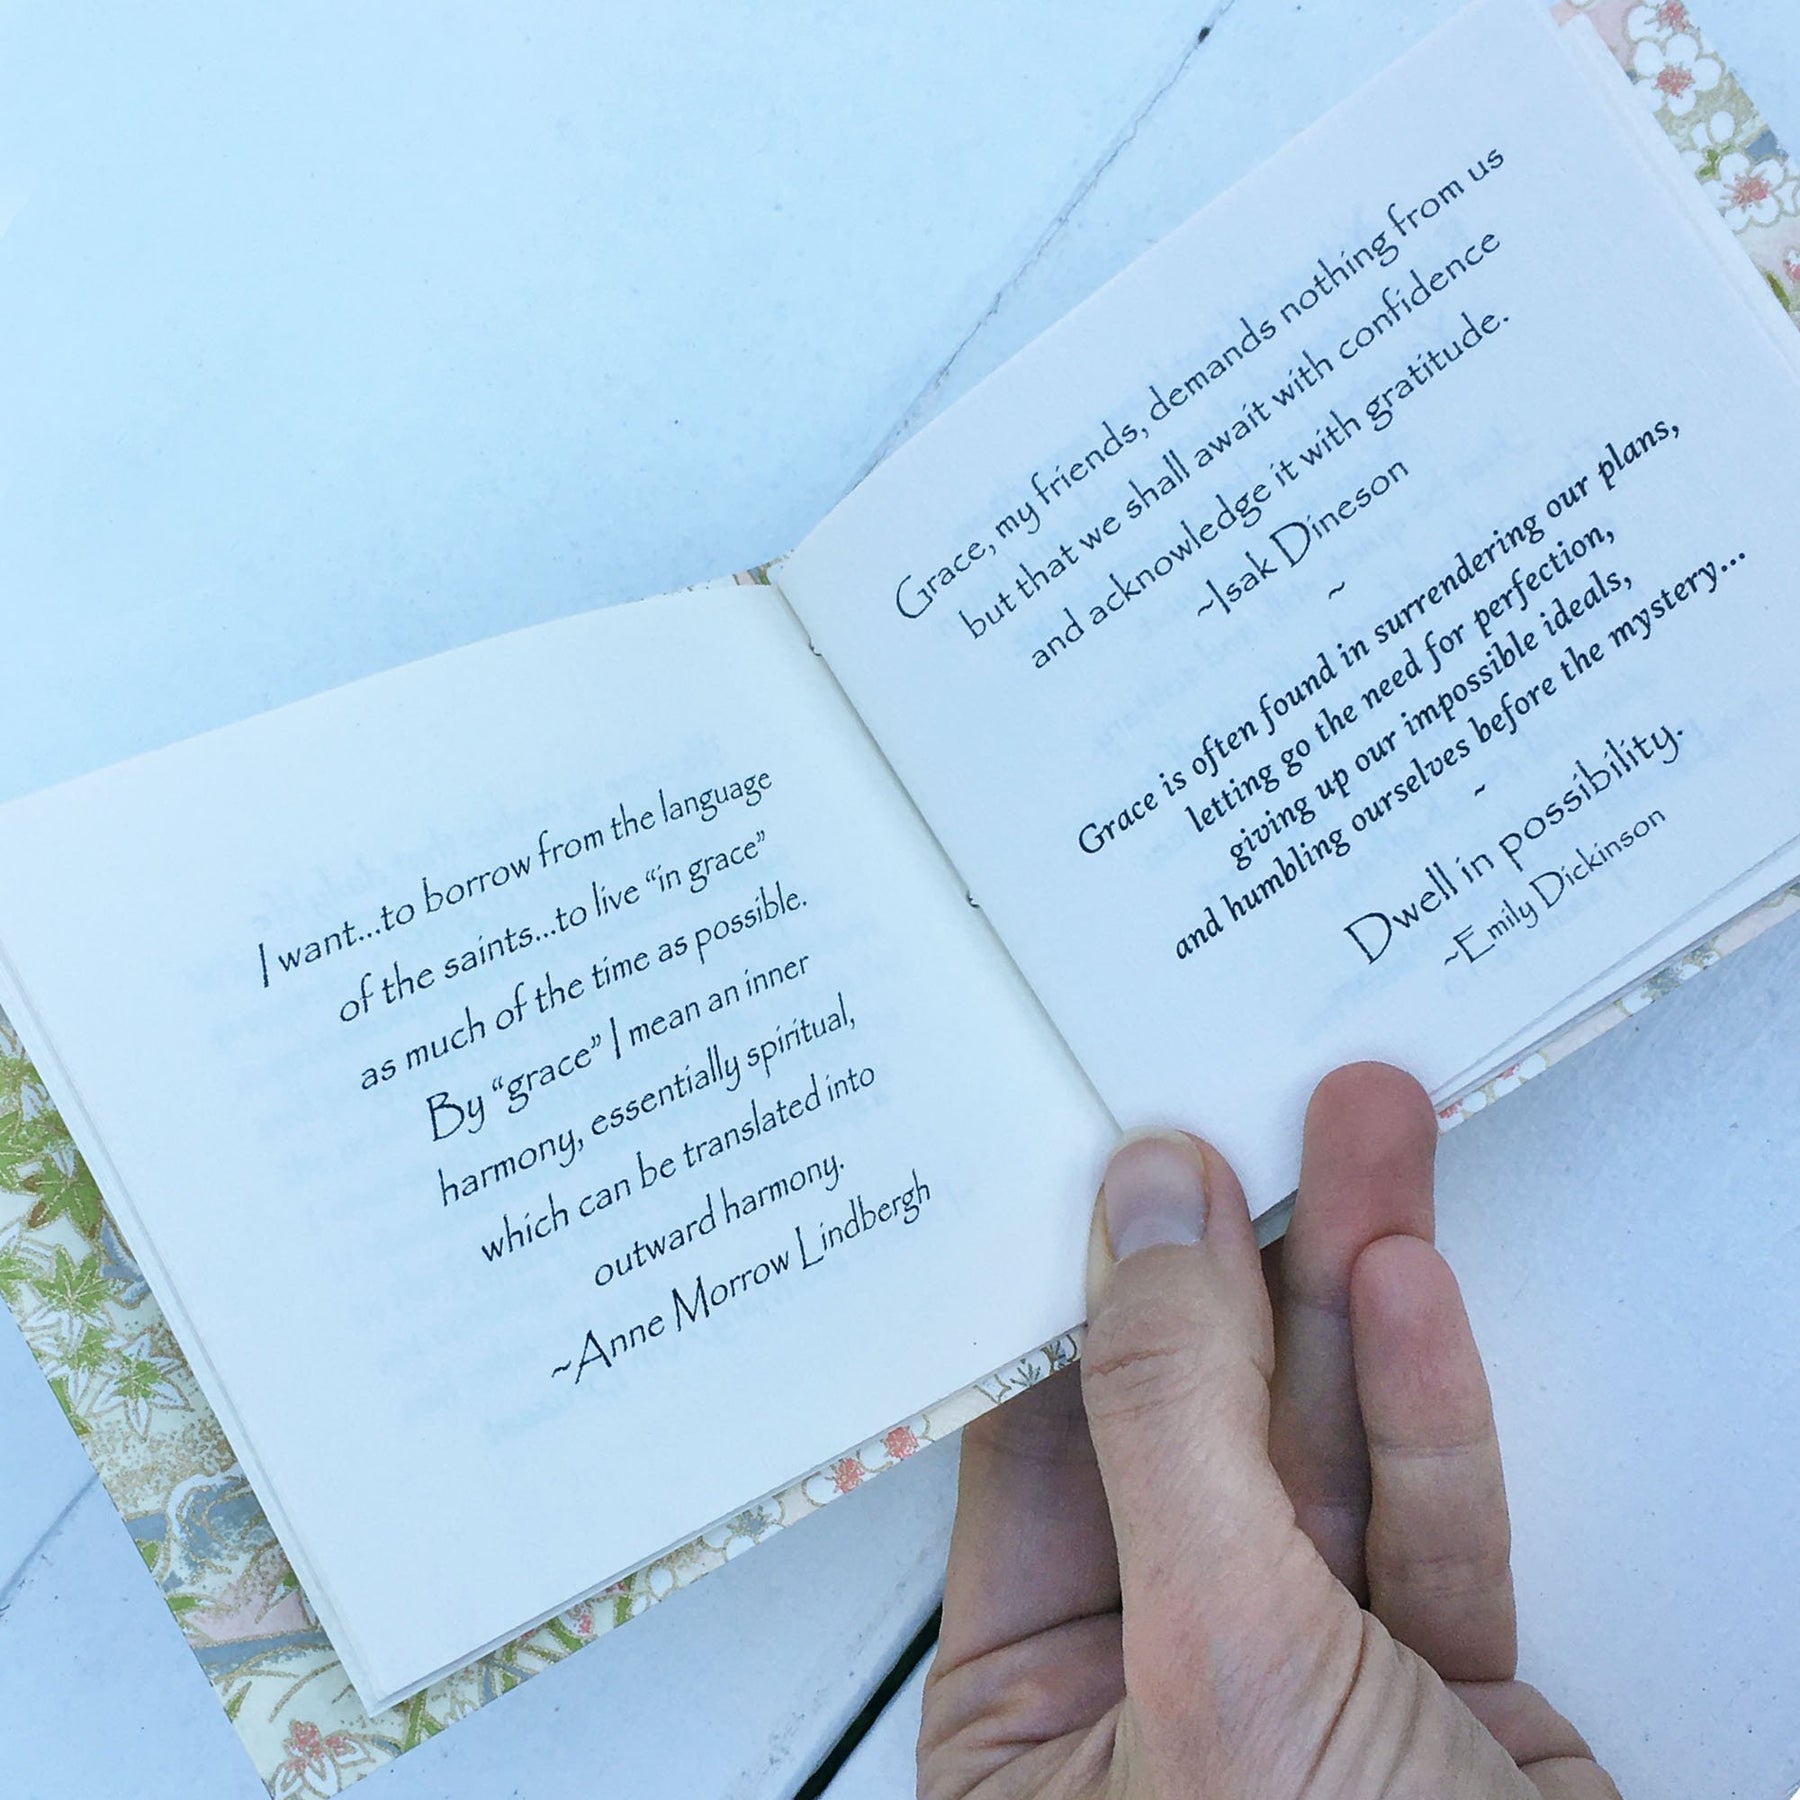 I want...to borrow from the language
of the saints...to live “in grace”
as much of the time as possible.
By “grace” I mean an inner
harmony, essentially spiritual,
which can be translated into
outward harmony.
~Anne Morrow Lindbergh
Grace, my friends, demands nothing from us
but that we shall await with confidence
and acknowledge it with gratitude.
~Isak Dineson
~
Grace is often found in surrendering our plans,
letting go the need for perfection,
giving up our impossible ideals,
and humbling ourselves before the mystery...
~
Dwell in possibility.
~Emily Dickinson